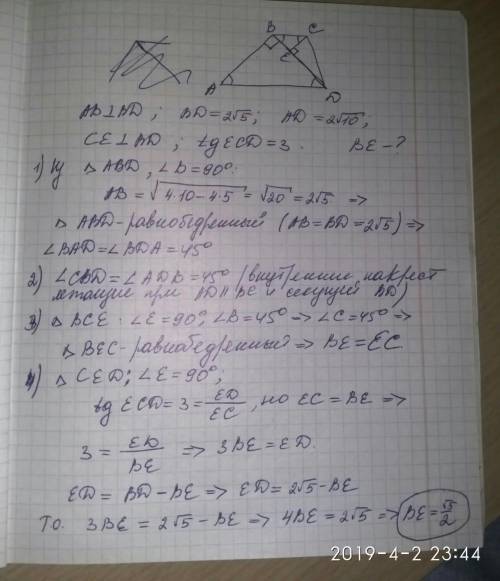 B C
E
A D
AB⊥AD; BD=2√5; AD=2√10;
CE⊥AD; tg ECD=3. BE-?
1) Из △ ABD, ∠B=90°:
AB = √4·10-4·5 = √20 = 2√5 =>
△ ABD-равнобедренный (AB=BD=2√5) =>
∠BAD=∠BDA=45°
2) ∠CBD=∠ADB=45° (внутренние накрест
лежащие при AD∥BC и секущей BD)
3) △ BCE. ∠E=90°, ∠B=45° => ∠C=45° =>
△ BEC-равнобедренный => BE=EC.
4) △ CED; ∠E=90°,
tg ECD=3=ED/EC, но EC=BE =>
3 = ED/BE => 3BE=ED.
ED = BD-BE => ED=2√5-BE
То. 3BE = 2√5-BE => 4BE=2√5 => BE=√5/2
2019-4-2 23:44